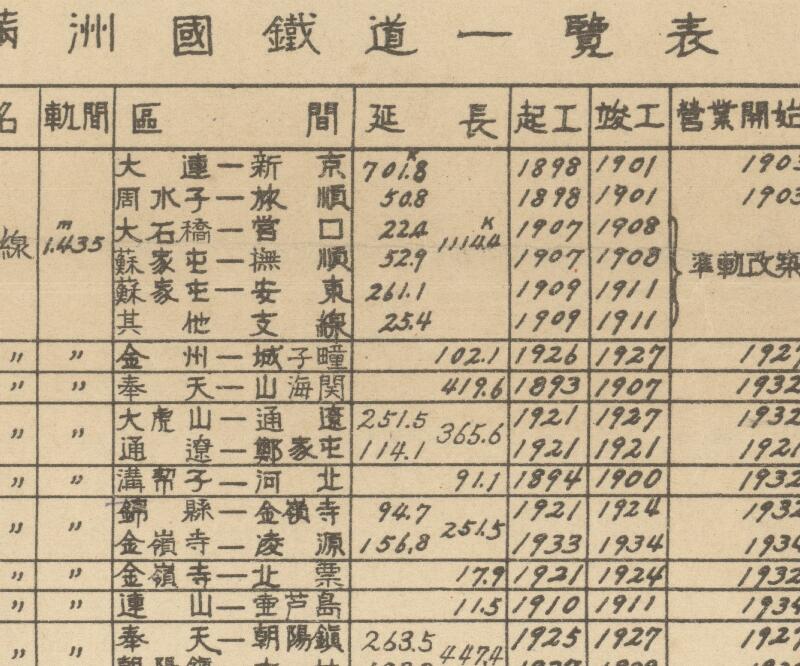 満洲國鐵道一覽表
名 軌間 區間 延長 起工 竣工 営業開始
大連—新京 701.8 1898 1901 1903
周水子—旅順 50.8 1898 1901 1903
大石橋—営口 22.4 1907 1908
線 1.435 m 1114.4 K
蘇家屯—撫順 52.9 1907 1908 準軌改築
蘇家屯—安東 261.1 1909 1911
其他支線 25.4 1909 1911
〃 〃 金州—城子疃 102.1 1926 1927 1927
〃 〃 奉天—山海関 419.6 1893 1907 1932
大虎山—通遼 251.5 1921 1927 1932
〃 〃 365.6
通遼—鄭家屯 114.1 1921 1921 1921
〃 〃 溝幇子—河北 91.1 1894 1900 1932
錦縣—金嶺寺 94.7 1921 1924 1932
〃 〃 251.5
金嶺寺—凌源 156.8 1933 1934 1934
〃 〃 金嶺寺—北票 17.9 1921 1924 1932
〃 〃 連山—壷芦島 11.5 1910 1911 1934
奉天—朝陽鎮 263.5 1925 1927 1927
〃 〃 447.4